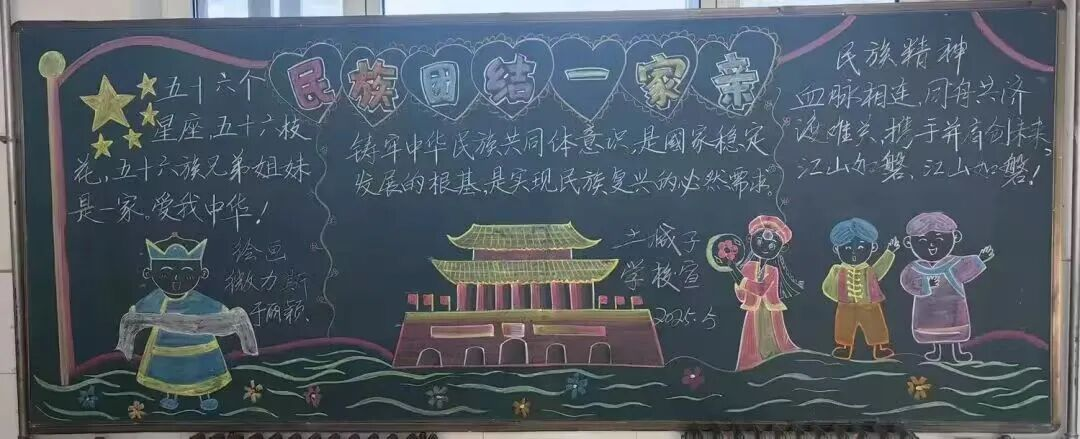 民族团结一家亲
五十六个
星座,五十六枝
花,五十六族兄弟姐妹
是一家。爱我中华!
绘画
微力斯
于丽颖
铸牢中华民族共同体意识,是國家稳定
发展的根基,是实现民族复兴的必然需求
土城子
学校宣
2025.
民族精神
血脉相连,同舟共济
渡难关,携手并肩创未来,
江山如磐、江山如磐!